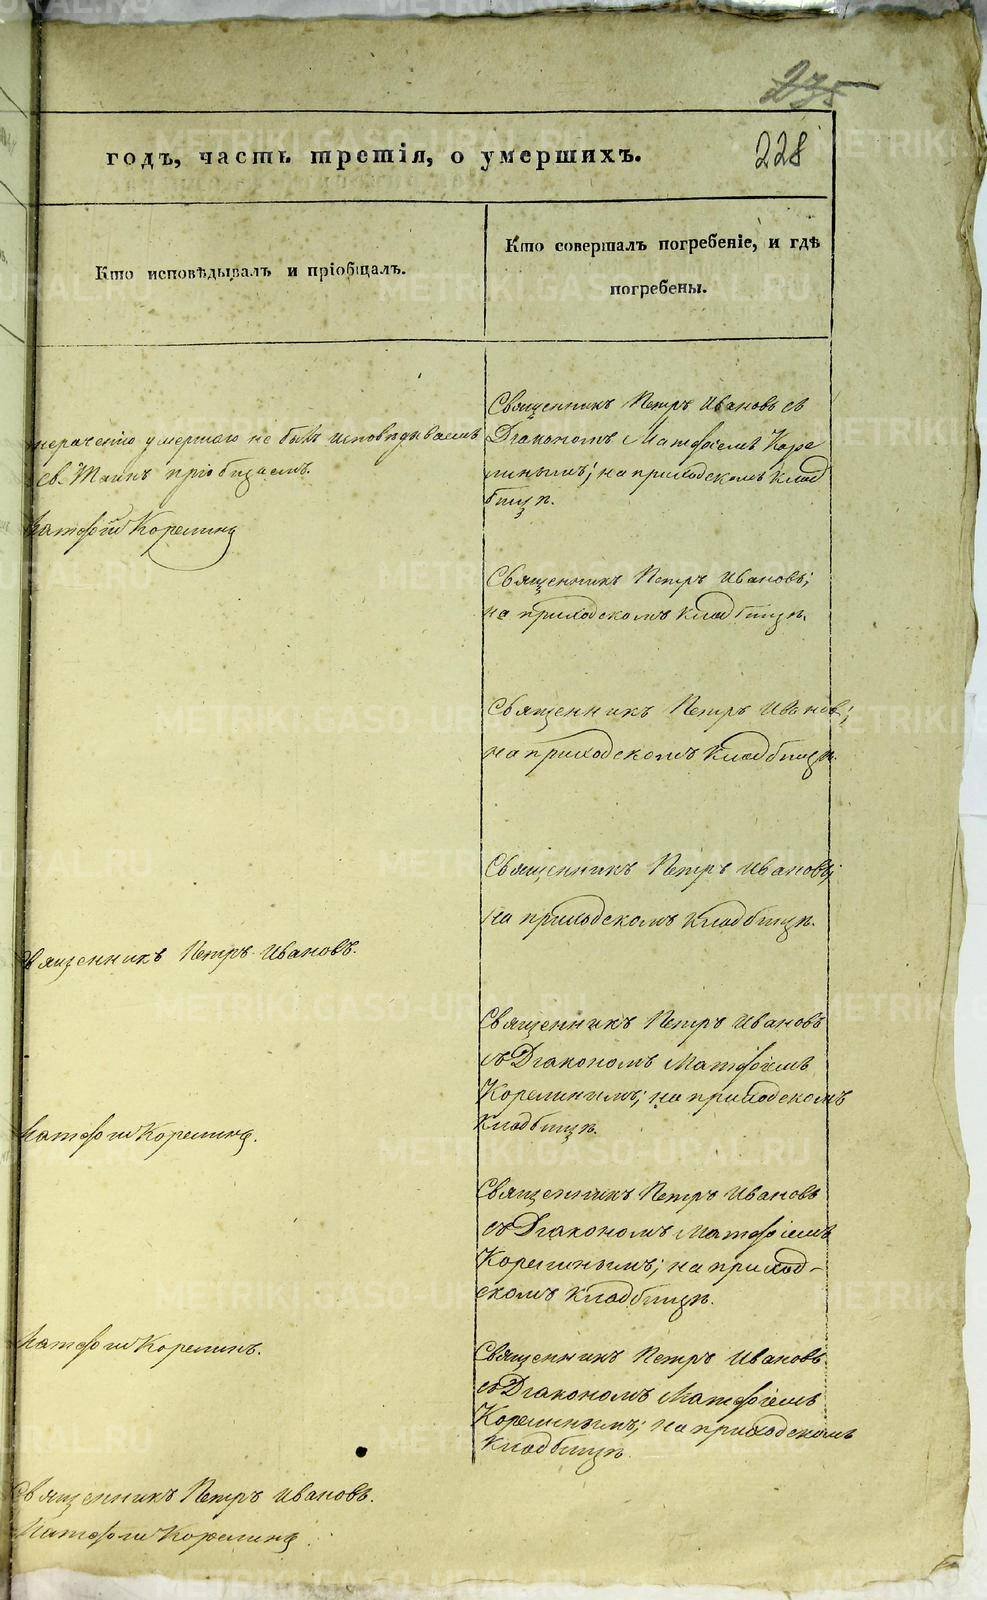 235
годъ, часть третія, о умершихъ.
228
Кто исповѣдывалъ и пріобщалъ.
Кто совершалъ погребеніе, и гдѣ
погребены.
нераченію умершаго не былъ исповѣдываемъ
св. Таинъ пріобщаемъ.
Матѳій Корелинъ
Священникъ Петръ Ивановъ съ
Діакономъ Матѳіемъ Коре
линымъ; на приходскомъ клад
бищѣ.
Священникъ Петръ Ивановъ;
на приходскомъ кладбищѣ.
Священникъ Петръ Ивановъ;
на приходскомъ кладбищѣ.
Священникъ Петръ Ивановъ;
на приходскомъ кладбищѣ.
Священникъ Петръ Ивановъ.
Священникъ Петръ Ивановъ
съ Діакономъ Матѳіемъ
Корелинымъ; на приходскомъ
кладбищѣ.
Матѳій Корелинъ.
Священникъ Петръ Ивановъ
съ Діакономъ Матѳіемъ
Корелинымъ; на приход-
скомъ кладбищѣ.
Матѳій Корелинъ.
Священникъ Петръ Ивановъ
съ Діакономъ Матѳіемъ
Корелинымъ; на приходскомъ
кладбищѣ.
Священникъ Петръ Ивановъ.
Матѳій Корелинъ.
METRIKI.GASO-URAL.RU